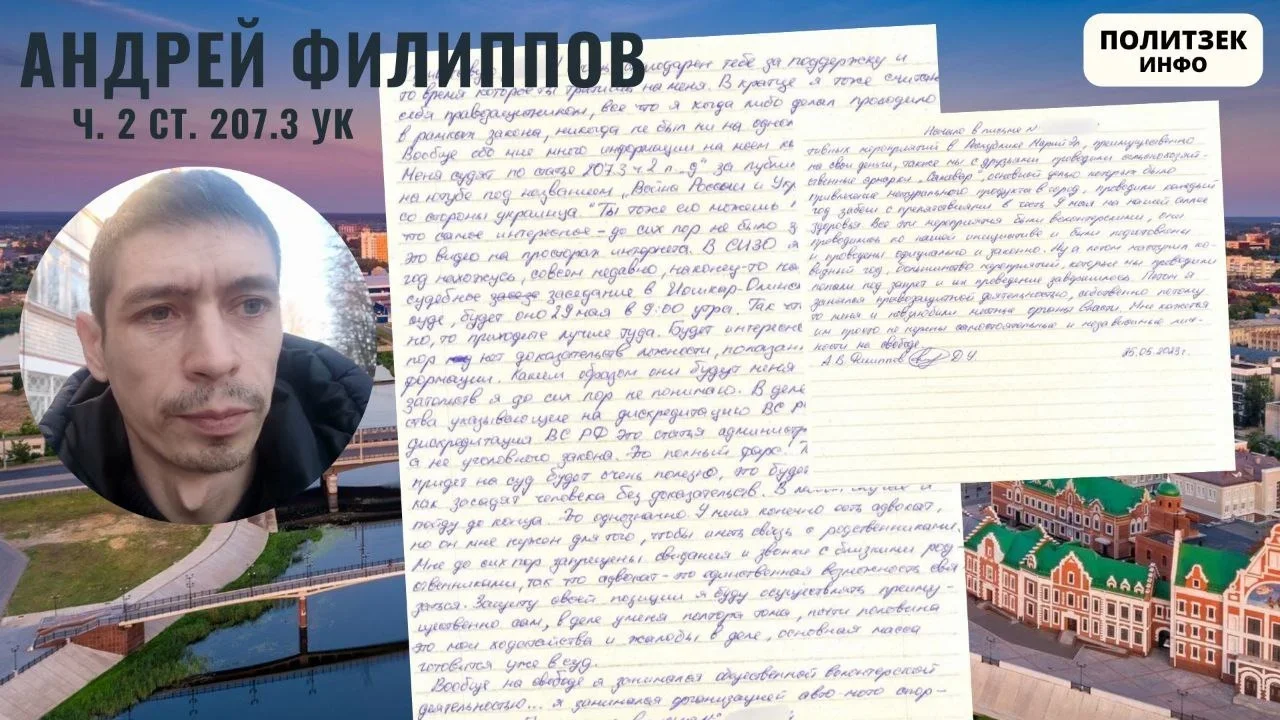 АНДРЕЙ ФИЛИППОВ
Ч. 2 СТ. 207.3 УК
ПОЛИТЗЕК
ИНФО
тебе за поддержку и
то время которое ты тратишь на меня. В кратце я тоже считаю
себя правозащитником, все что я когда либо делал проходило
в рамках закона, никогда не был ни на одном
Вообще обо мне много информации на моем
Меня судят по статье 207.3 ч 2 п. "д" за
на ютубе под названием "Война России и Укр
со стороны украинца. "Ты тоже его можешь
что самое интересное - до сих пор не было
это видео на просторах интернета. В СИЗО я
год нахожусь, совсем недавно, наконец-то
судебное заседание в Йошкар-Олинск
суде, будет оно 29 мая в 9:00 утра. Так что
но, то приходите лучше туда. Будет интересно
пор нет доказательств ложности,
формации. Каким образом они будут меня
затомств я до сих пор не понимаю. В деле
ства указывающие на дискредитацию ВС Р
дискредитация ВС РФ это статья администр
а не уголовного закона. Это полный фарс.
придет на суд будет очень полезно, это буде
как засадят человека без доказательств. В
пойду до конца. Это однозначно. У меня конечно есть адвокат,
но он мне нужен для того, чтобы иметь связь с родственниками.
Мне до сих пор запрещены свидания и звонки с близкими род-
ственниками, так что адвокат - это единственная возможность свя
заться. Защиту своей позиции я буду осуществлять преиму-
щественно сам, в деле у меня полтора тома, почти половина
это мои ходатайства и жалобы в деле, основная масса
готовится уже в суд.
Вообще на свободе я занимался общественной волонтерской
деятельностью... я занимался организацией авто мото спор-
Начало в письме N
тивных мероприятий в Республике Марий Эл, преимущественно
на свои деньги, также мы с друзьями проводили сельскохозяй-
ственные ярмарки основной целью которых было
привлечение натурального продукта в город, проводили каждый
год забеги с препятствиями в честь 9 мая на нашей аллее
здоровья. Все эти мероприятия были волонтерскими, они
проводились по нашей инициативе и были подготовлены
и проведены официально и законно. Ну а потом наступил ко-
видный год, большинство мероприятий, которые мы проводили
попали под запрет и их проведение завершилось. Потом я
занялся правозащитной деятельностью, собственно потому
то меня и невзлюбили местные органы власти. Мне кажется
им просто не нужны самостоятельные и независимые лич-
ности на свободе.
А.В. Филиппов 25.05.2023 г.